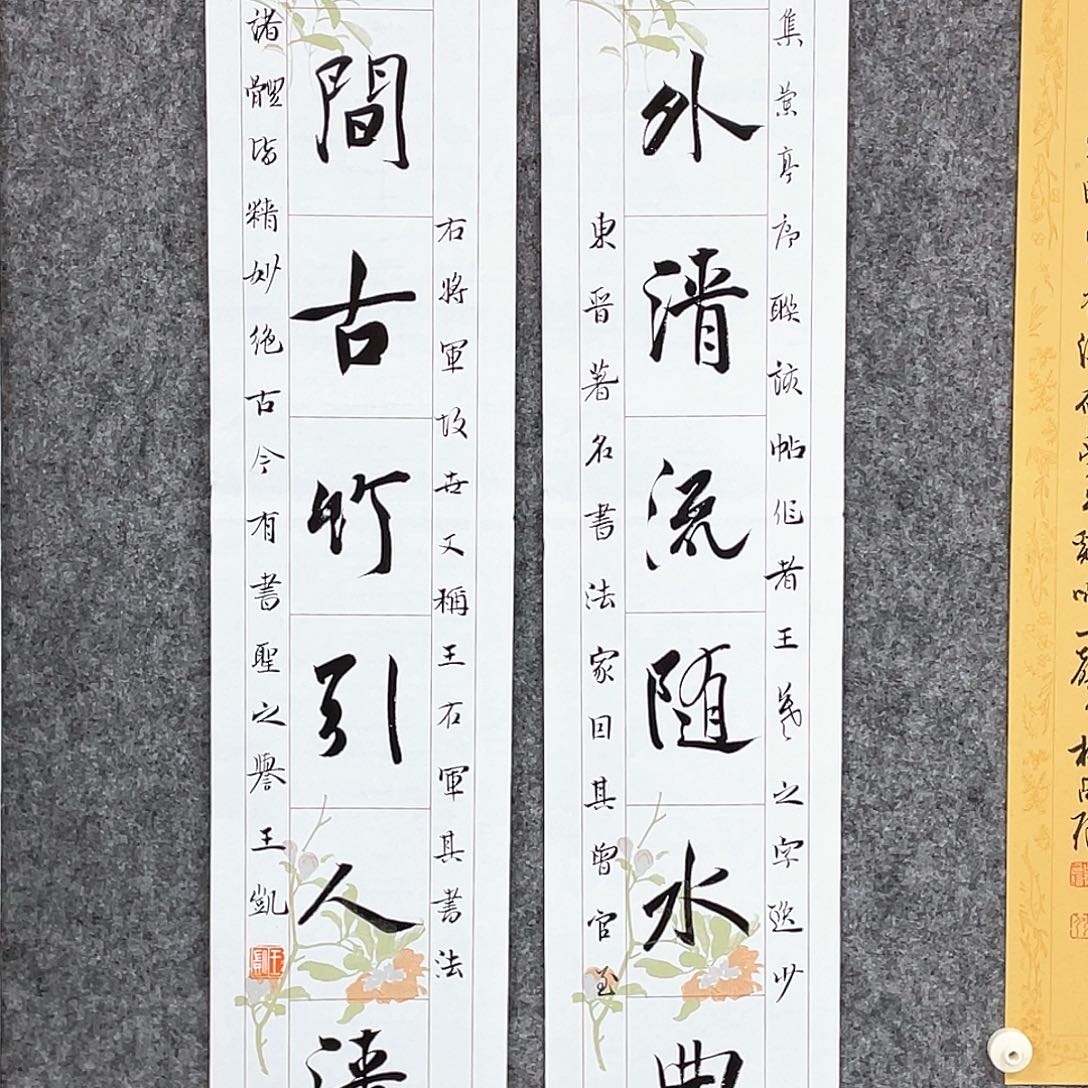 集蘭亭序聯該帖作者王羲之字逸少
外清流随水曲
東晉著名書法家因其曾官至
右將軍故世又稱王右軍其書法
間古竹引人清
諸體皆精妙絕古今有書聖之譽王凱